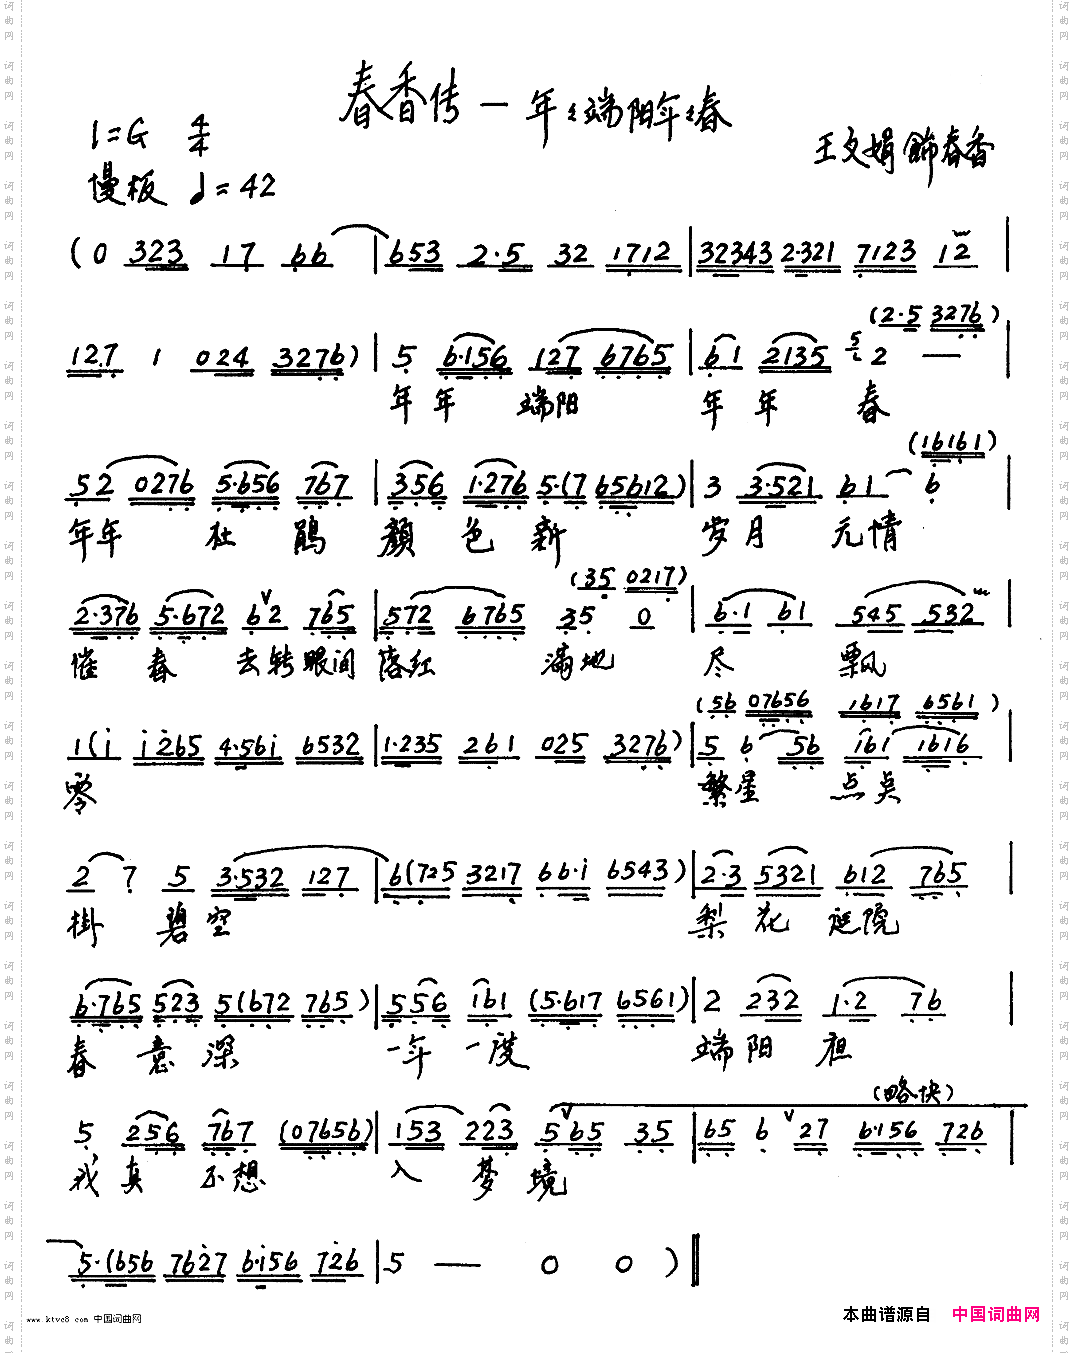 春香传 — 年年端阳年年春
1=G 4/4
王文娟 饰春香
慢板 ♩=42
(0 323 17 66 | 653 2·5 32 1712 | 32343 2·321 7123 12 |
(2·5 3276)
127 1 024 3276) | 5 6·156 127 6765 | 61 2135 2 — |
年年 端阳 年年 春
(16161)
52 0276 5·656 767 | 356 1·276 5·(7 65612) | 3 3·521 61 6 |
年年 杜 鹃 颜 色 新 岁月 无情
(35 0217)
2·376 5·672 62 765 | 572 6765 35 0 | 6·1 61 545 532 |
催 春 去转眼间 落红 满地 尽 飘
(56 07656 1617 6561)
1(i i265 4·56i 6532 | 1·235 261 025 3276) | 5 6 56 161 1616 |
零 繁星 点点
2 7 5 3·532 127 | 6(725 3217 66·i 6543) | 2·3 5321 612 765 |
掛 碧空 梨花 庭院
6·765 523 5(672 765) | 556 161 (5·617 6561) | 2 232 1·2 76 |
春 意 深 一年 一度 端阳 在
(略快)
5 256 767 (07656) | 153 223 565 35 | 65 6 27 6·156 726 |
我 真 不想 入 梦境
5·(656 7627 6·156 726 | 5 — 0 0 )
www.ktvc8.com 中国词曲网
本曲谱源自 中国词曲网